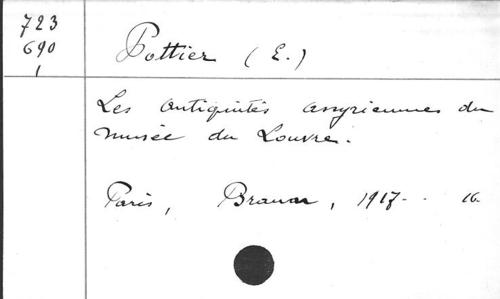 723
690
1
Pottier (E.)
Les antiquités assyriennes du
musée du Louvre.
Paris, Braun, 1917. 16